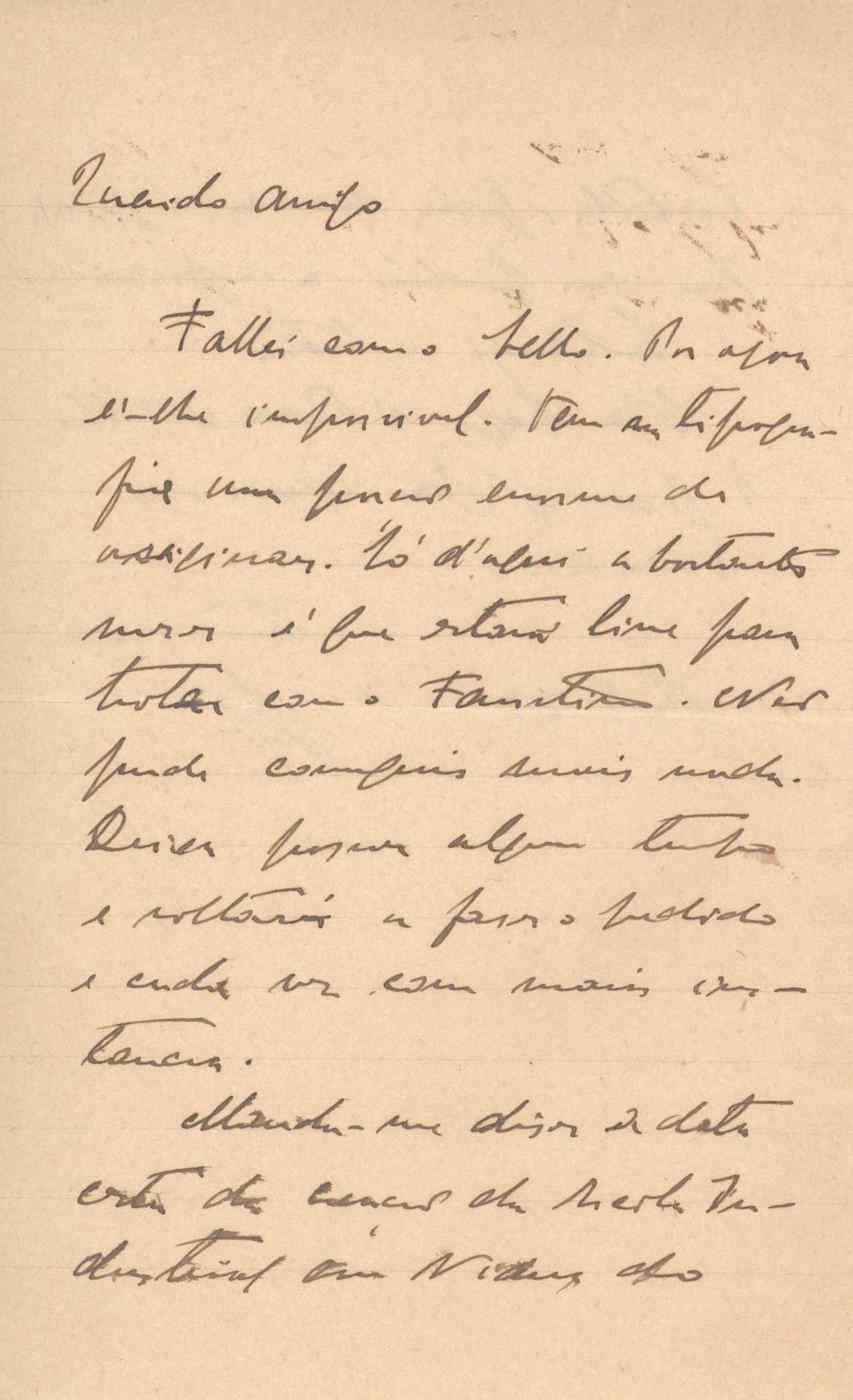 Querido amigo
Fallei com o Tello. Por agora
é-lhe impossivel. Tem na tipogra-
fia uma porção enorme de
assignar. Só d'aqui a bastantes
meses é que estará livre para
tratar com o Faustino. Não
pude conseguir mais nada.
Deixa passar algum tempo
e voltarei a faser o pedido
e cada vez com mais ins-
tancia.
Manda-me diser a data
certa da creação da Escola In-
dustrial em Vianna do